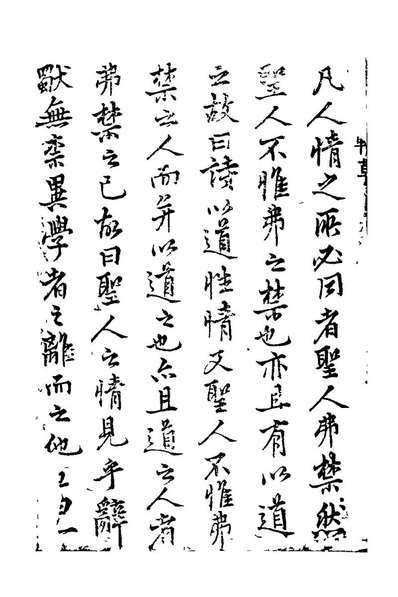 凡人情之所必同者聖人弗禁然
聖人不惟弗之禁也亦且有以道
之故曰詩以道性情又聖人不惟弗
禁之人而并以道之也亦且道之人者
弗禁之已故曰聖人之情見乎辭
獸無禁異學者之離而之他